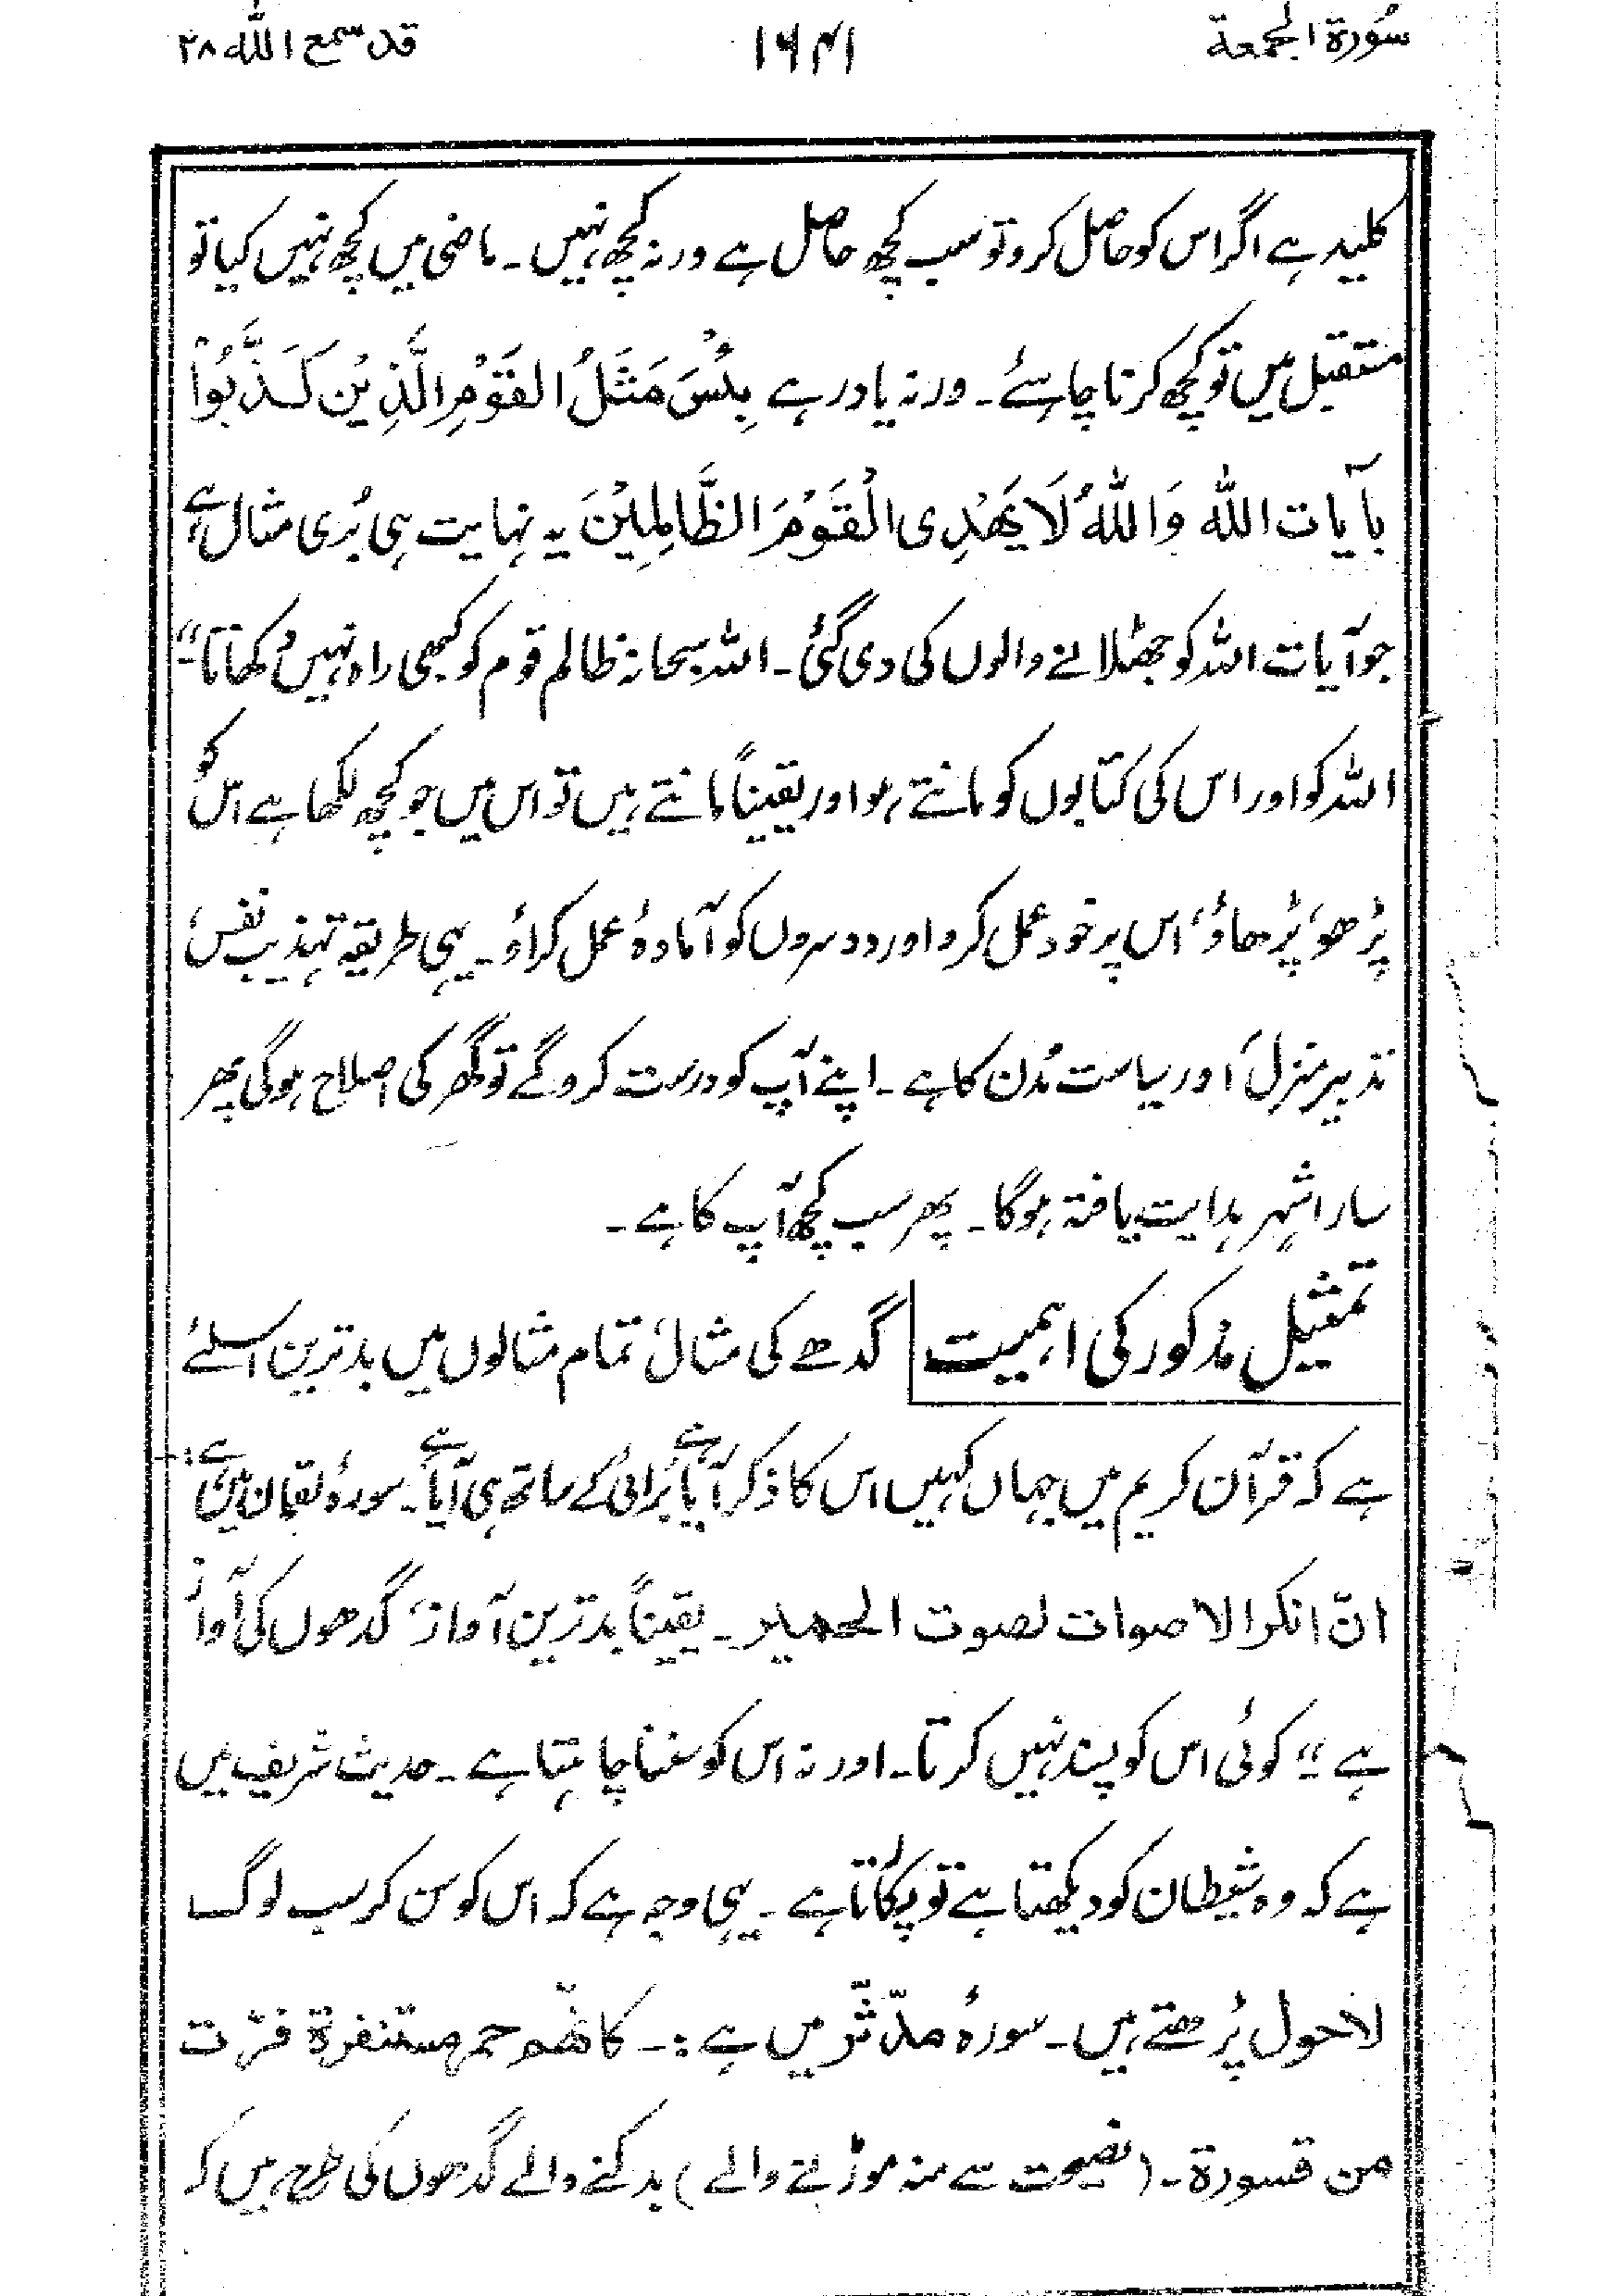 سُورة الجمعة ۱۶۴۱ قد سمع الله ۲۸
کلید ہے اگر اس کو حاصل کرو تو سب کچھ حاصل ہے ورنہ کچھ نہیں۔ ماضی میں کچھ نہیں کیا تو
مستقبل میں تو کچھ کرنا چاہئے۔ ورنہ یاد رہے بِئْسَ مَثَلُ الْقَوْمِ الَّذِیْنَ کَذَّبُوْا
بآیات اللہ وَاللّٰہُ لَا یَھْدِی الْقَوْمَ الظَّالِمِیْنَ یہ نہایت ہی بُری مثال ہے
جو آیات اللہ کو جھٹلانے والوں کی دی گئی۔ اللہ سبحانہ ظالم قوم کو کبھی راہ نہیں دکھاتا"۔
اللہ کو اور اس کی کتابوں کو مانتے ہو اور یقیناً مانتے ہیں تو اس میں جو کچھ لکھا ہے اس کو
پڑھو، پڑھاؤ، اس پر خود عمل کرو اور دوسروں کو آمادۂ عمل کراؤ۔ یہی طریقہ تہذیب نفس،
تدبیر منزل، اور سیاست مُدن کا ہے۔ اپنے آپ کو درست کرو گے تو گھر کی اصلاح ہوگی پھر
سارا شہر ہدایت یافتہ ہوگا۔ پھر سب کچھ آپ کا ہے۔
تمثیل مذکور کی اہمیت گدھے کی مثال، تمام مثالوں میں بدترین اسلئے
ہے کہ قرآن کریم میں جہاں کہیں اس کا ذکر آیا ہے بُرائی کے ساتھ ہی آیا ہے۔ سورۂ لقمان میں ہے:-
انّ انکر الاصوات لصوت الحمیر۔ یقیناً بدترین آواز، گدھوں کی آواز
ہے"۔ کوئی اس کو پسند نہیں کرتا۔ اور نہ اس کو سننا چاہتا ہے۔ حدیث شریف میں
ہے کہ وہ شیطان کو دیکھتا ہے تو پکارتا ہے۔ یہی وجہ ہے کہ اس کو سن کر سب لوگ
لاحول پڑھتے ہیں۔ سورۂ مدّثّر میں ہے:۔ کانھّم حمر مستنفرة فرّت
من قسورة۔ (نصیحت سے منہ موڑنے والے) بدکنے والے گدھوں کی طرح ہیں کہ